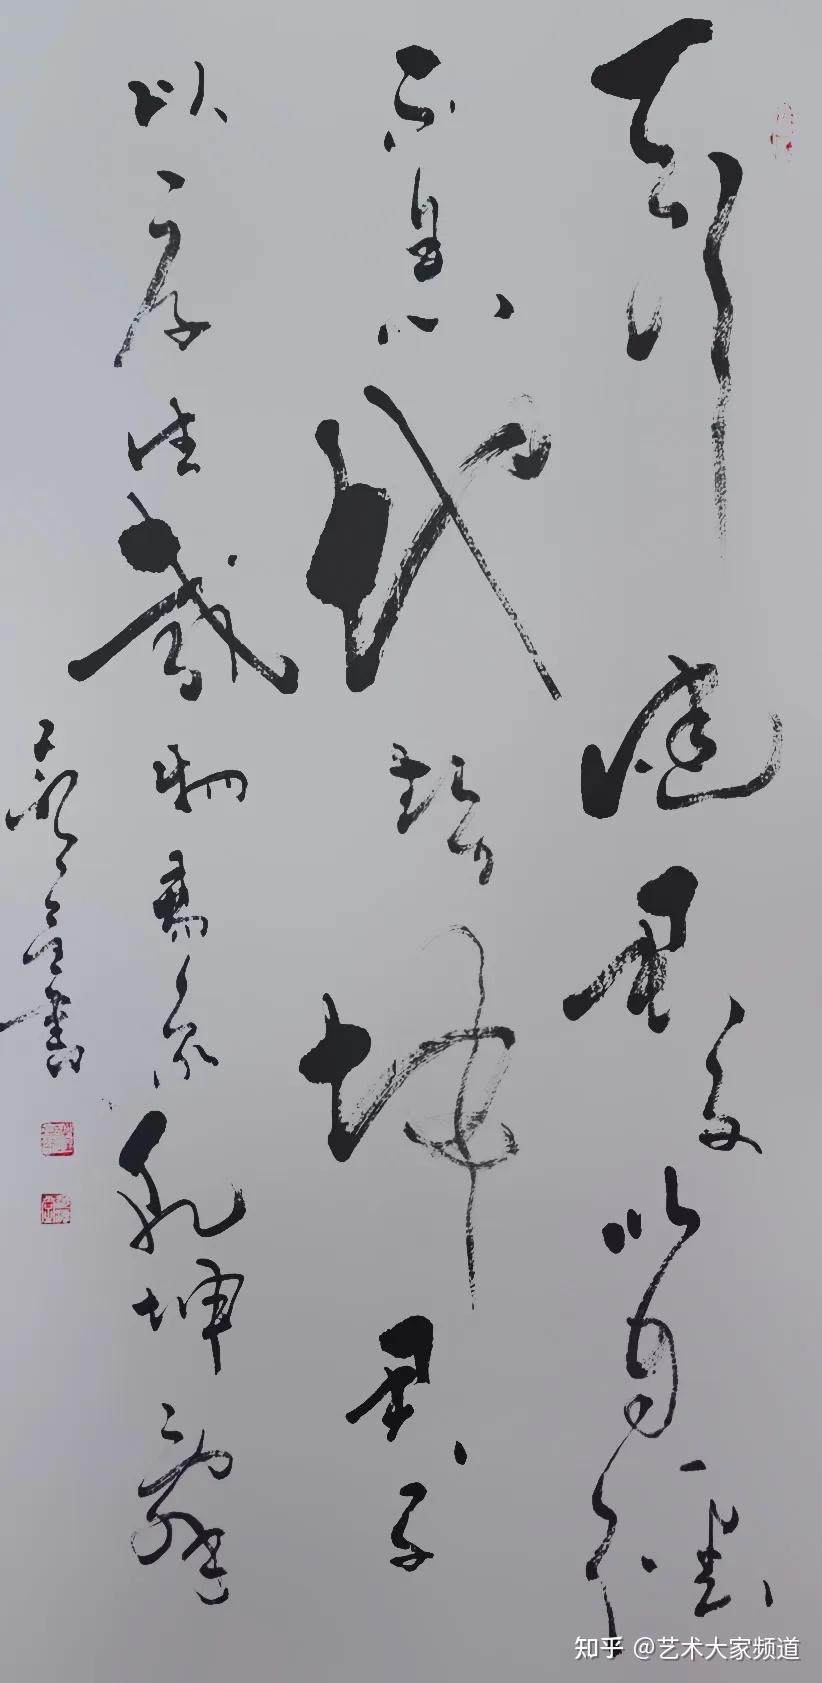 天行健君子以自強
不息地勢坤君子
以厚德載物象乾坤
書
知乎 @艺术大家频道